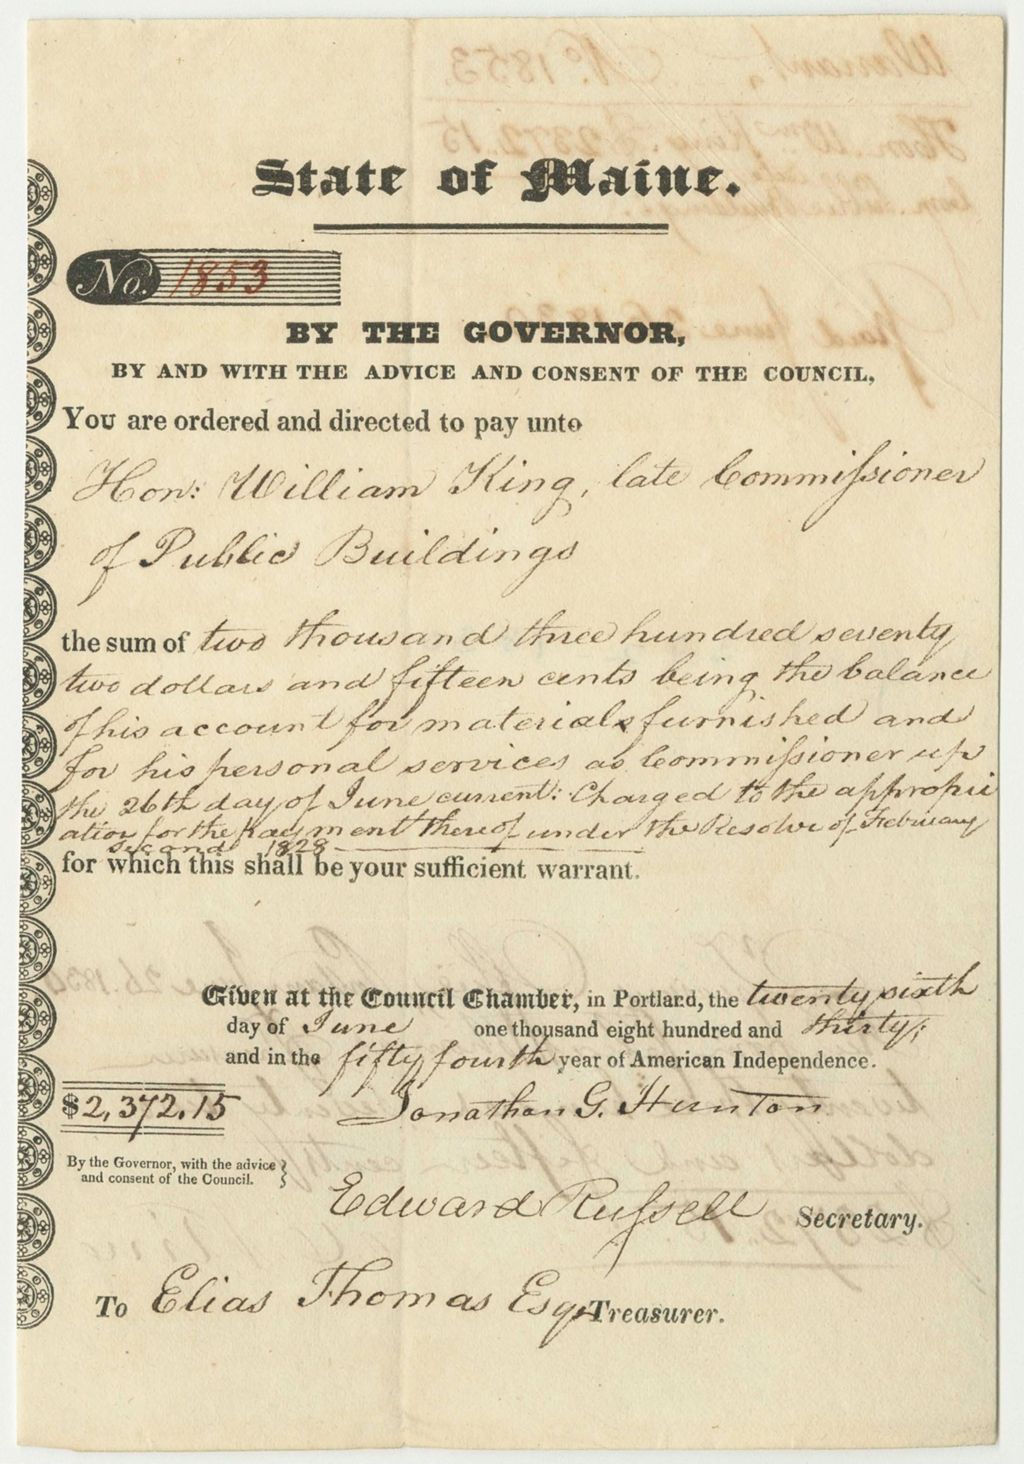 State of Maine.
No. 1853
BY THE GOVERNOR,
BY AND WITH THE ADVICE AND CONSENT OF THE COUNCIL,
You are ordered and directed to pay unto
Hon: William King, late Commissioner
of Public Buildings
the sum of two thousand three hundred seventy
two dollars and fifteen cents being the balance
of his account for materials furnished and
for his personal services as Commissioner up
the 26th day of June current: Charged to the appropri
ation for the payment thereof under the Resolve of February
second 1828
for which this shall be your sufficient warrant.
Given at the Council Chamber, in Portland, the twenty sixth
day of June one thousand eight hundred and thirty;
and in the fifty fourth year of American Independence.
$2,372.15
Jonathan G. Hunton
By the Governor, with the advice
and consent of the Council.
Edward Russell Secretary.
To Elias Thomas Esqr Treasurer.